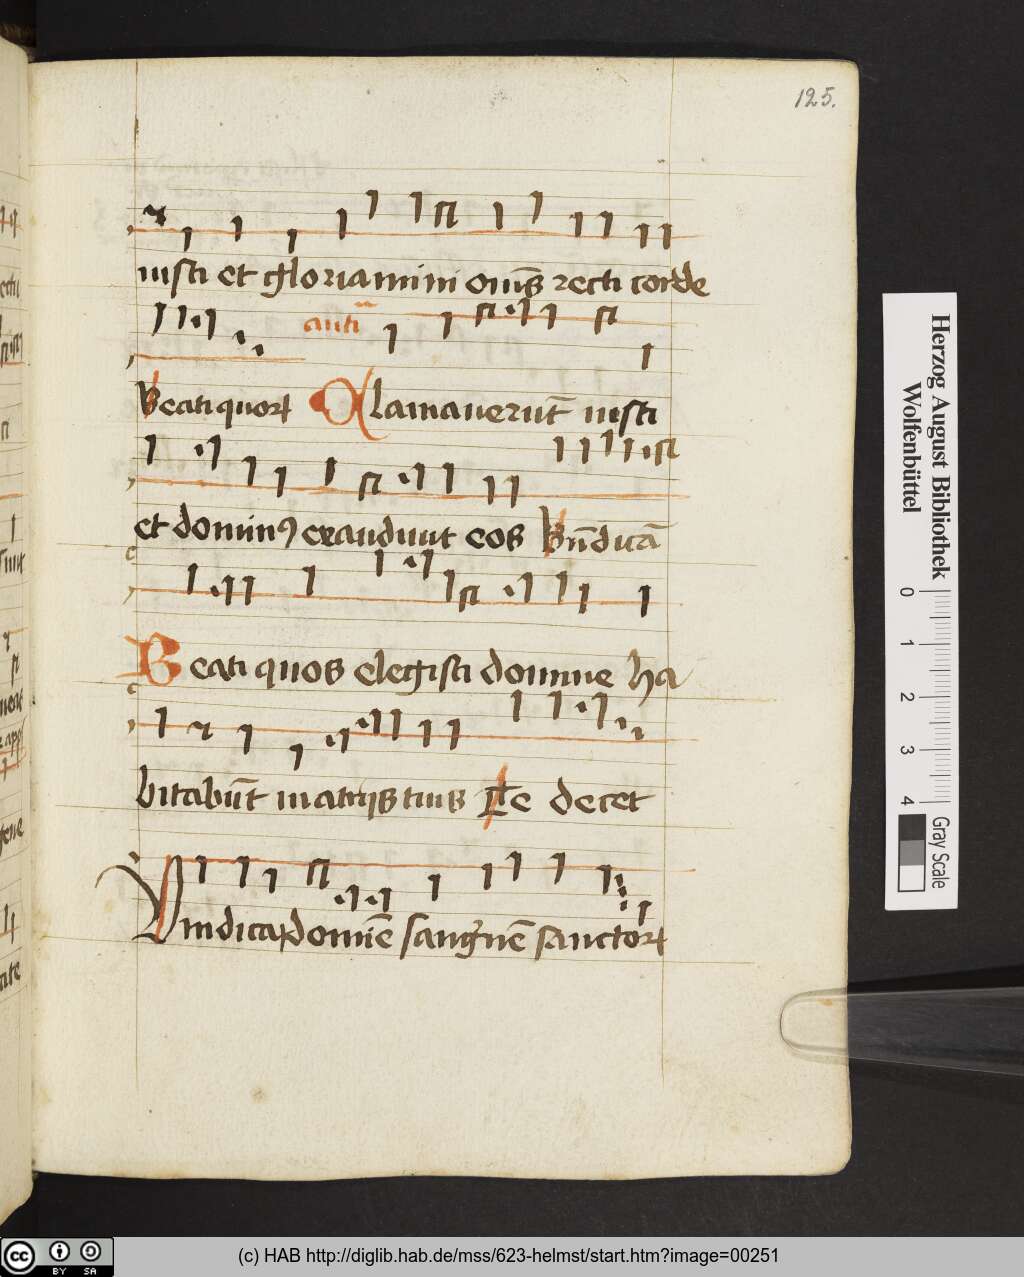 125.
iusti et gloriamini om̄s recti corde
anti
Beati quorꝝ Clamauerūt iusti
et dominꝰ exaudiuit eos Bn̄dicā
Beati quos elegisti domine ha
bitabūt in atrijs tuis Te decet
Vindica domīe sanguīem sanctorꝝ
Herzog August Bibliothek
Wolfenbüttel
0 1 2 3 4
Gray Scale
(c) HAB http://diglib.hab.de/mss/623-helmst/start.htm?image=00251
cc BY SA